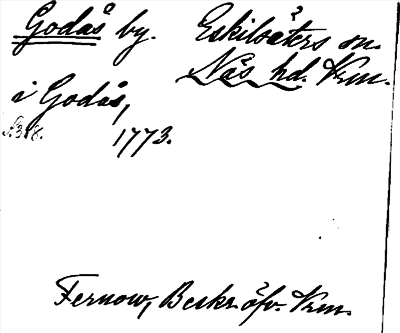 Godås by. Eskilsäters sn.
Näs hd. Vrm.
i Godås,
s. 318. 1773.
Fernow, Beskr. öfv. Vrm.